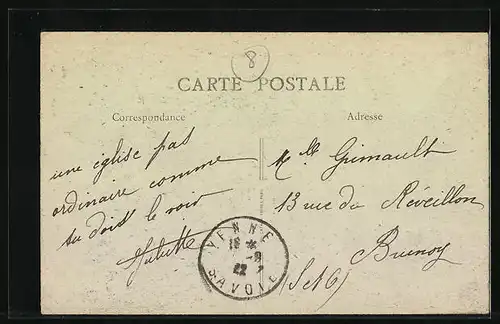 8
CARTE POSTALE
Correspondance
Adresse
une église pas
ordinaire comme
tu dois le voir
Juliette
Mlle Grimault
13 rue du Réveillon
Brunoy
(S et O)
YENNE
18 *
-8
22
SAVOIE